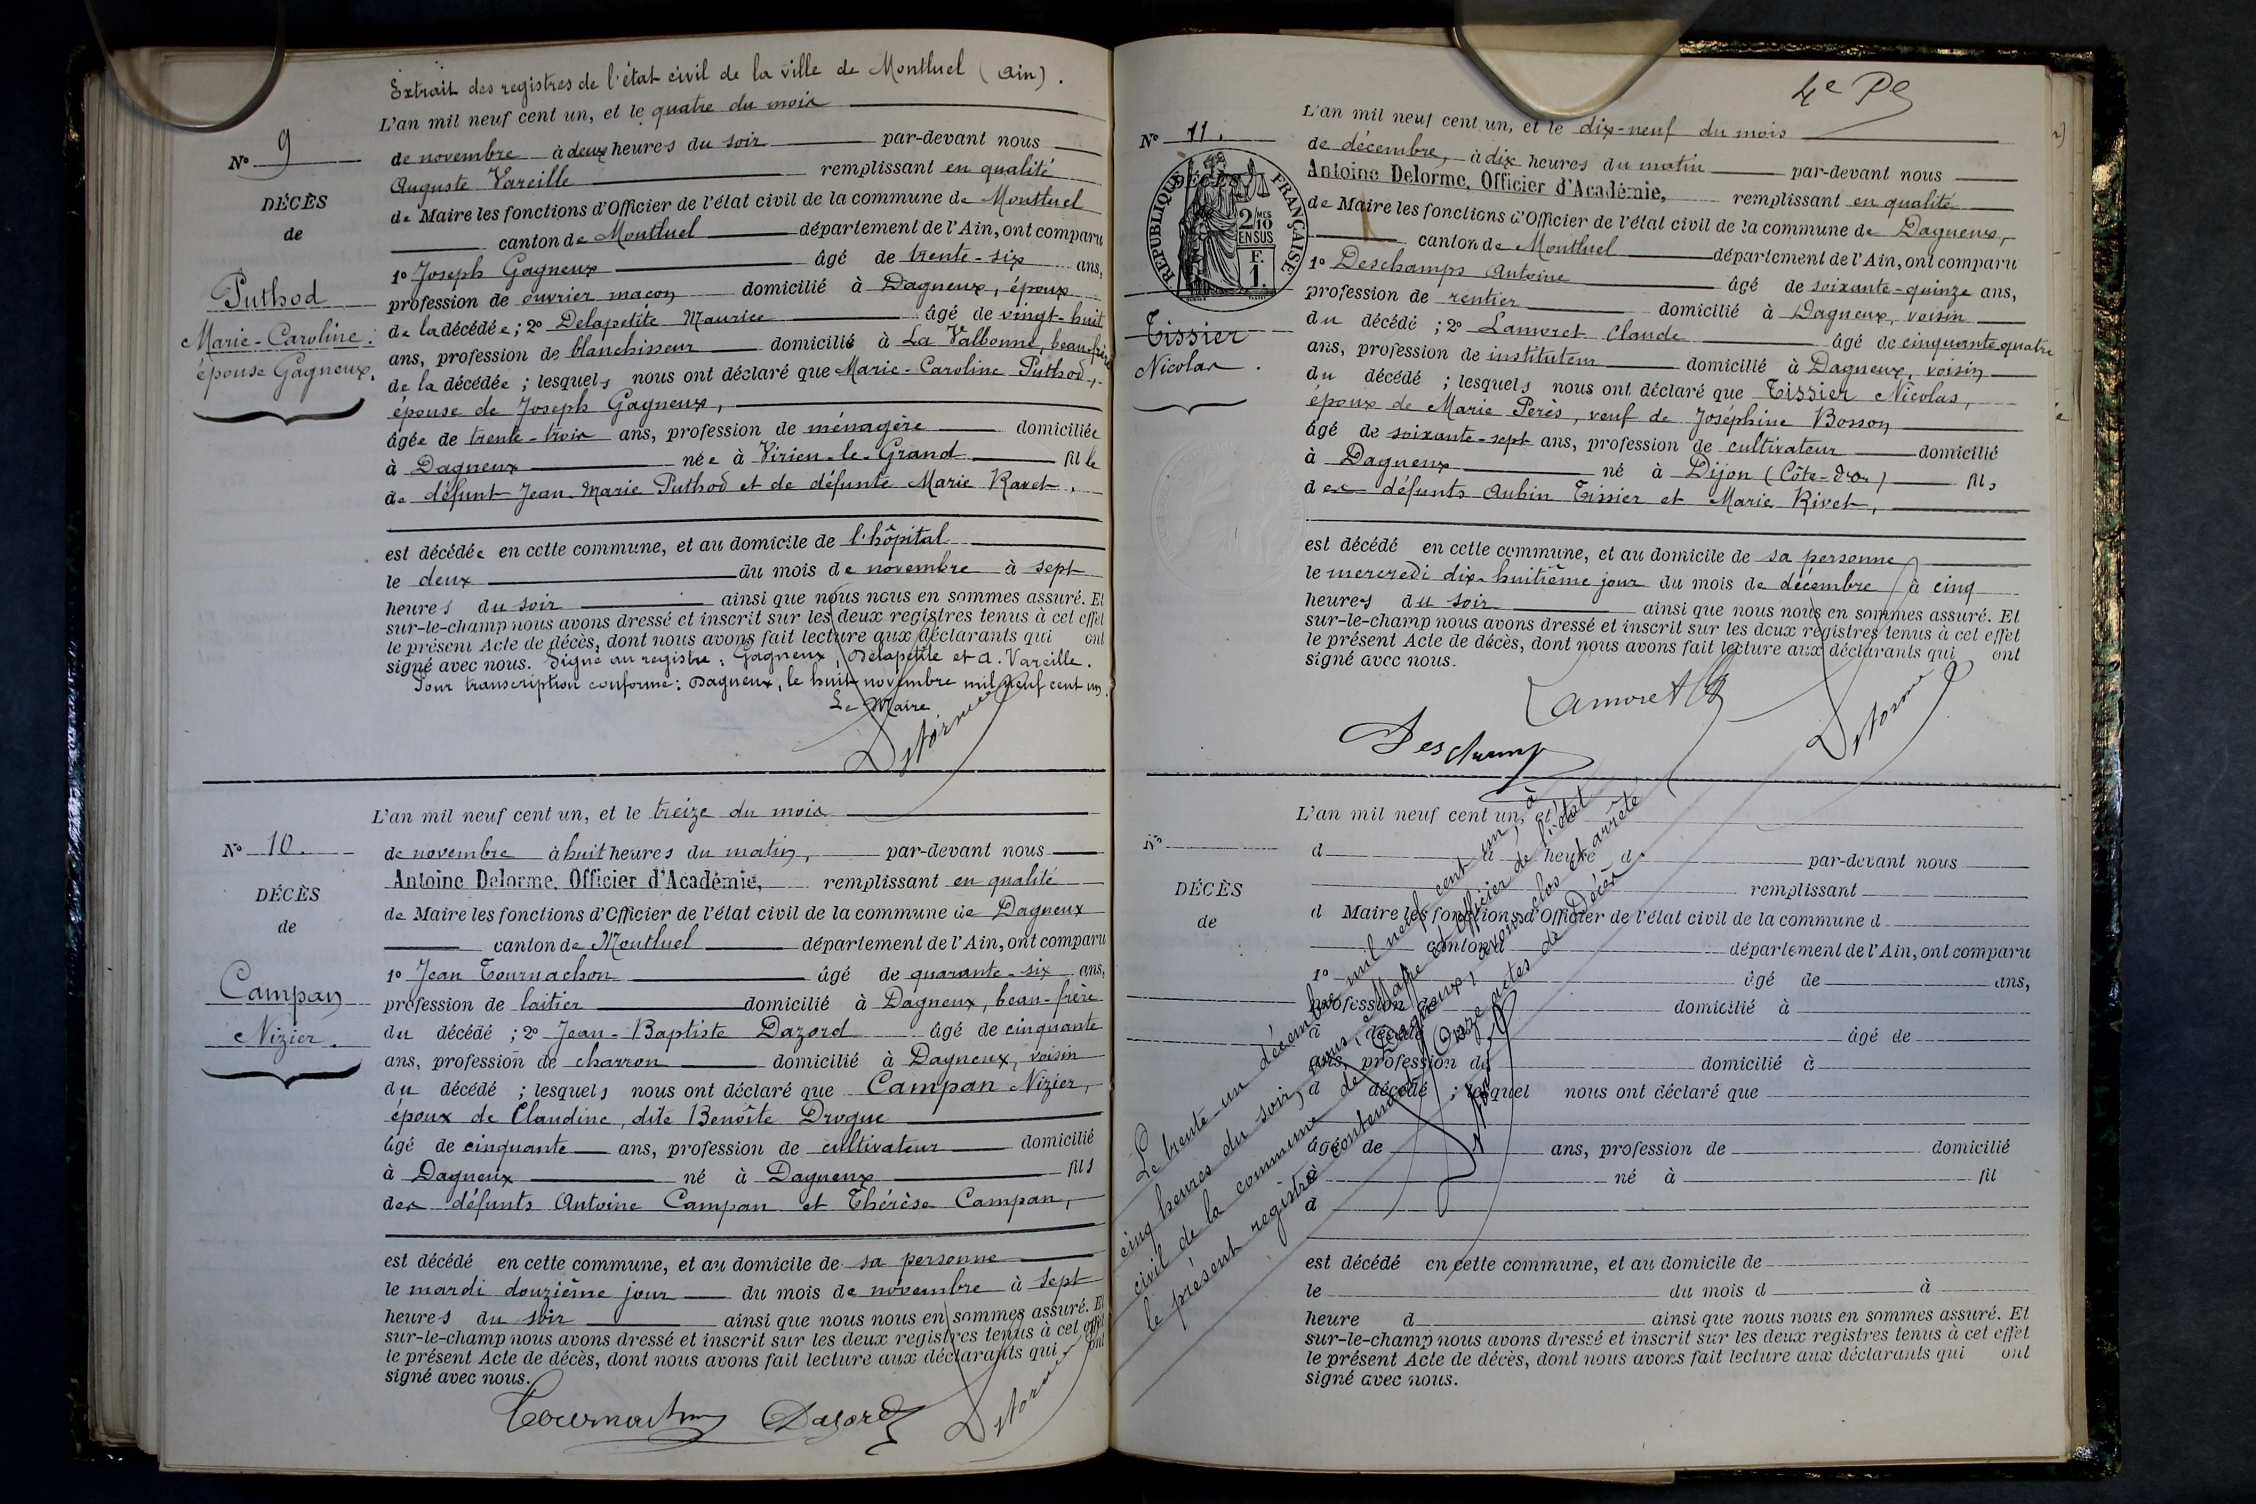 Extrait des registres de l'état civil de la ville de Montluel (Ain).
L'an mil neuf cent un, et le quatre du mois
No 9
de novembre à deux heures du soir par-devant nous
Auguste Vareille remplissant en qualité
DÉCÈS
de Maire les fonctions d'Officier de l'état civil de la commune de Montluel
de
canton de Montluel département de l'Ain, ont comparu
1o Joseph Gagneux âgé de trente-six ans,
Puthod
profession de ouvrier maçon domicilié à Dagneux, époux
de la décédée; 2o Delapetite Maurice âgé de vingt-huit
Marie-Caroline
ans, profession de blanchisseur domicilié à La Valbonne, beau-frère
épouse Gagneux.
de la décédée; lesquels nous ont déclaré que Marie-Caroline Puthod,
épouse de Joseph Gagneux,
âgée de trente-trois ans, profession de ménagère domiciliée
à Dagneux née à Virieu-le-Grand fille
de défunt Jean-Marie Puthod et de défunte Marie Ravet,
est décédée en cette commune, et au domicile de l'hôpital
le deux du mois de novembre à sept
heures du soir ainsi que nous nous en sommes assuré. Et
sur-le-champ nous avons dressé et inscrit sur les deux registres tenus à cet effet
le présent Acte de décès, dont nous avons fait lecture aux déclarants qui ont
signé avec nous. Signé au registre: Gagneux, Delapetite et A. Vareille.
Pour transcription conforme: Dagneux, le huit novembre mil neuf cent un.
Le Maire
Delorme
L'an mil neuf cent un, et le treize du mois
No 10.
de novembre à huit heures du matin, par-devant nous
Antoine Delorme, Officier d'Académie, remplissant en qualité
DÉCÈS
de Maire les fonctions d'Officier de l'état civil de la commune de Dagneux
de
canton de Montluel département de l'Ain, ont comparu
1o Jean Tournachon âgé de quarante-six ans,
Campan
profession de laitier domicilié à Dagneux, beau-frère
Nizier.
du décédé; 2o Jean-Baptiste Dazord âgé de cinquante
ans, profession de charron domicilié à Dagneux, voisin
du décédé; lesquels nous ont déclaré que Campan Nizier,
époux de Claudine, dite Benoîte Drogue
âgé de cinquante ans, profession de cultivateur domicilié
à Dagneux né à Dagneux fils
des défunts Antoine Campan et Thérèse Campan,
est décédé en cette commune, et au domicile de sa personne
le mardi douzième jour du mois de novembre à sept
heures du soir ainsi que nous nous en sommes assuré. Et
sur-le-champ nous avons dressé et inscrit sur les deux registres tenus à cet effet
le présent Acte de décès, dont nous avons fait lecture aux déclarants qui ont
signé avec nous.
Tournachon Dazord Delorme
4e Pe
L'an mil neuf cent un, et le dix-neuf du mois
No 11.
de décembre, à dix heures du matin par-devant nous
Antoine Delorme, Officier d'Académie, remplissant en qualité
DÉCÈS
RÉPUBLIQUE FRANÇAISE
2/10 MES
EN SUS
F.
1.
de Maire les fonctions d'Officier de l'état civil de la commune de Dagneux,
canton de Montluel département de l'Ain, ont comparu
1o Deschamps Antoine âgé de soixante-quinze ans,
profession de rentier domicilié à Dagneux, voisin
Tissier
du décédé; 2o Lamoret Claude âgé de cinquante quatre
Nicolas.
ans, profession de instituteur domicilié à Dagneux, voisin
du décédé; lesquels nous ont déclaré que Tissier Nicolas,
époux de Marie Perès, veuf de Joséphine Bosson
âgé de soixante-sept ans, profession de cultivateur domicilié
à Dagneux né à Dijon (Côte-d'Or) fils
des défunts Aubin Tissier et Marie Rivet,
est décédé en cette commune, et au domicile de sa personne
le mercredi dix-huitième jour du mois de décembre à cinq
heures du soir ainsi que nous nous en sommes assuré. Et
sur-le-champ nous avons dressé et inscrit sur les deux registres tenus à cet effet
le présent Acte de décès, dont nous avons fait lecture aux déclarants qui ont
signé avec nous.
Lamoret
Deschamp
Delorme
L'an mil neuf cent un, et
No
d à heure d par-devant nous
remplissant
DÉCÈS
d Maire les fonctions d'Officier de l'état civil de la commune d
de
canton d département de l'Ain, ont comparu
1o âgé de ans,
profession de domicilié à
d décédé âgé de
ans, profession de domicilié à
d décédé; lesquel nous ont déclaré que
âgé de ans, profession de domicilié
à né à fil
d
est décédé en cette commune, et au domicile de
le du mois d à
heure d ainsi que nous nous en sommes assuré. Et
sur-le-champ nous avons dressé et inscrit sur les deux registres tenus à cet effet
le présent Acte de décès, dont nous avons fait lecture aux déclarants qui ont
signé avec nous.
Le trente-un décembre mil neuf cent un, à
cinq heures du soir, nous, Maire et Officier de l'état
civil de la commune de Dagneux, avons clos et arrêté
le présent registre contenant Onze actes de Décès
Delorme